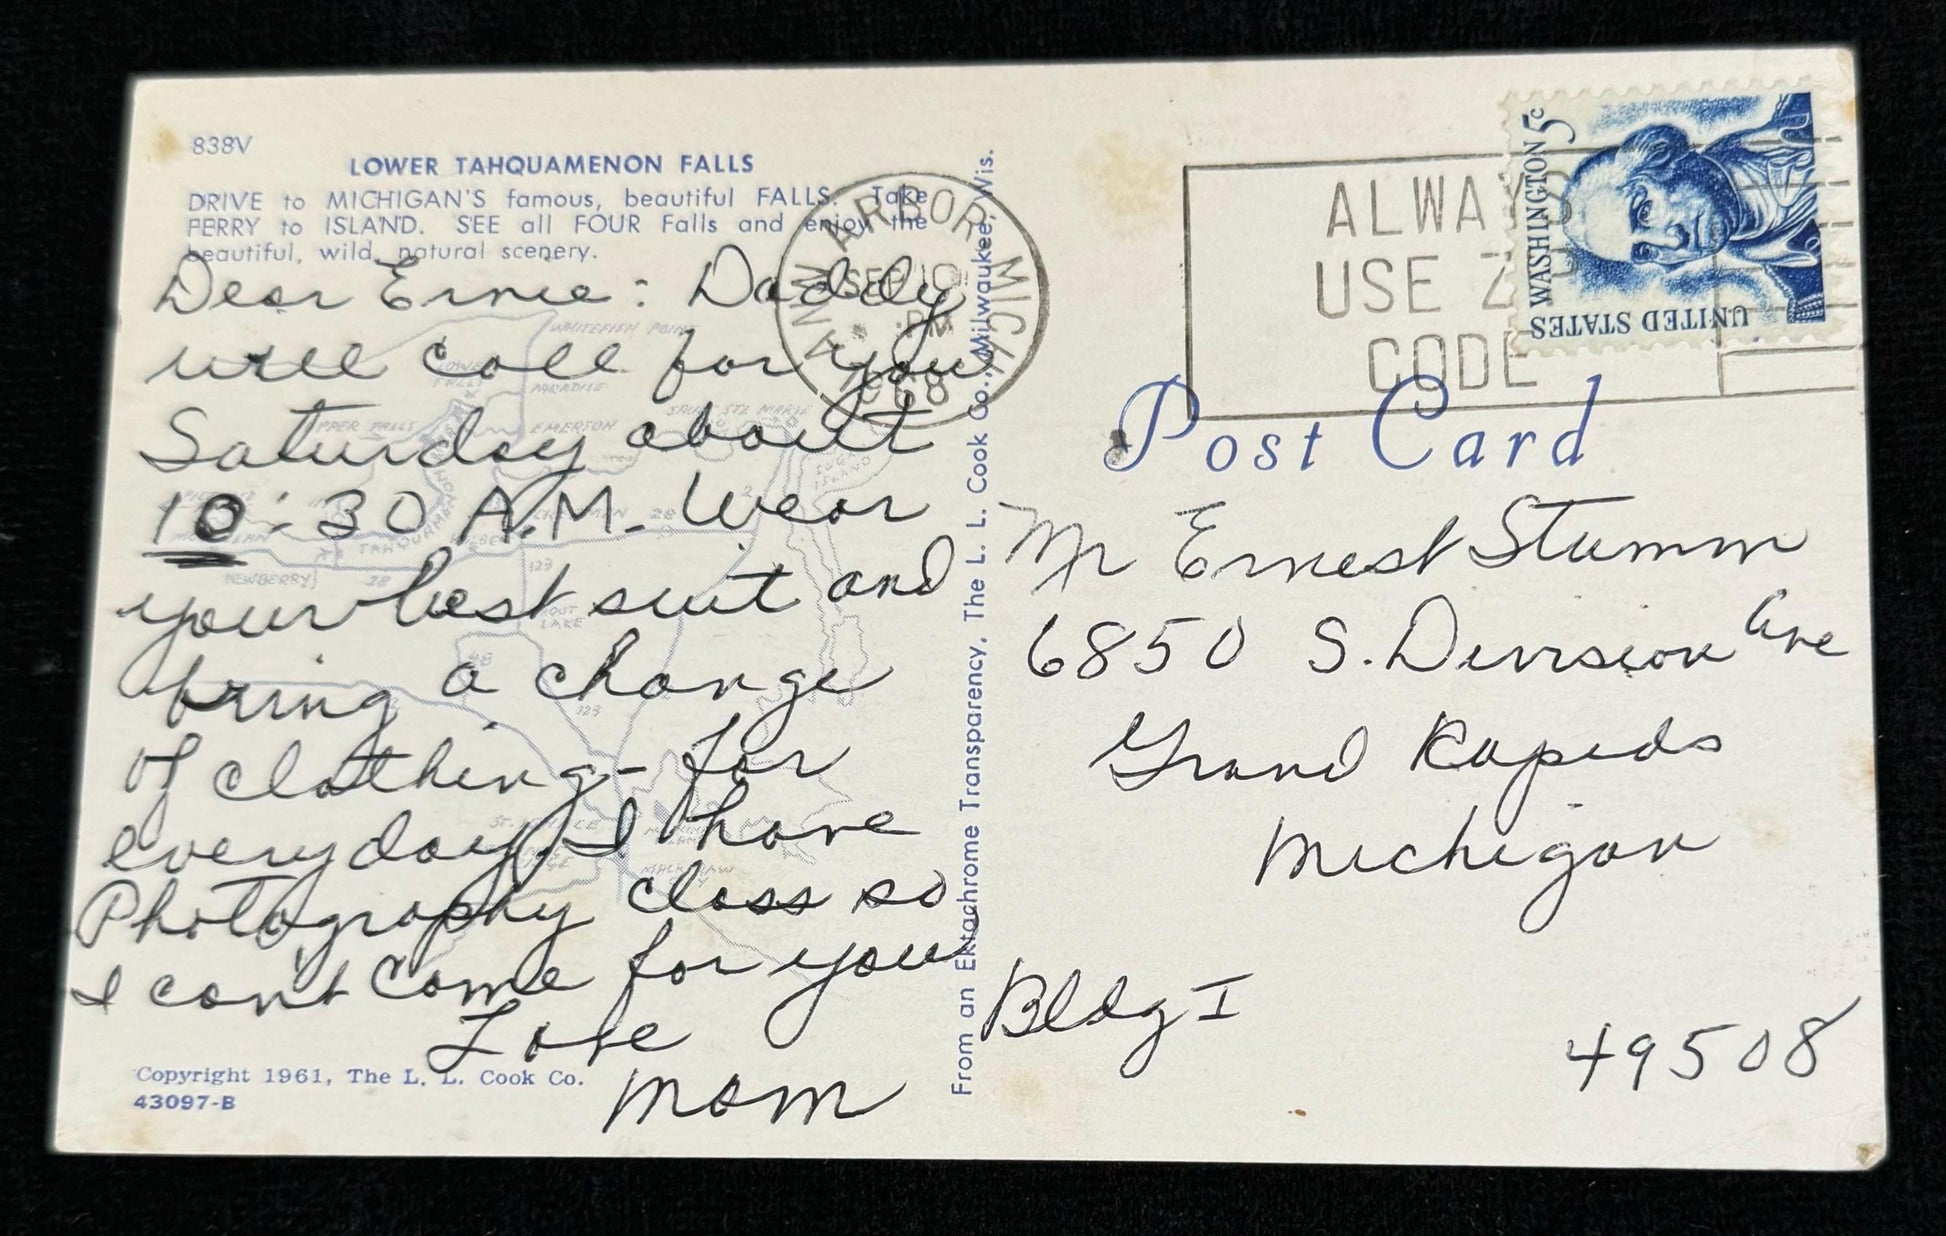 838V
LOWER TAHQUAMENON FALLS
DRIVE to MICHIGAN'S famous, beautiful FALLS. Take
FERRY to ISLAND. SEE all FOUR Falls and enjoy the
beautiful, wild, natural scenery.
Dear Ernie: Daddy
will call for you
Saturday about
10:30 A.M. Wear
your best suit and
bring a change
of clothing - for
everyday. I have
Photography class so
I can't come for you
Love
Mom
Copyright 1961, The L. L. Cook Co.
43097-B
WHITEFISH POINT
PARADISE
EMERSON
NEWBERRY
28
123
123
From an Ektachrome Transparency, The L. L. Cook Co., Milwaukee, Wis.
ANN ARBOR MICH
SEP 10
PM
1968
ALWAYS
USE ZIP
CODE
WASHINGTON 5c
UNITED STATES
Post Card
Mr Ernest Stumm
6850 S. Division Ave
Grand Rapids
Michigan
Bldg I
49508